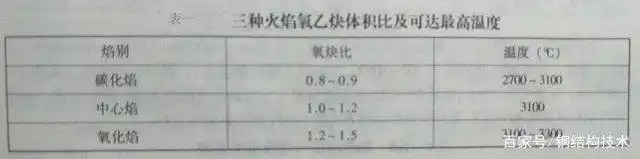 表一 三种火焰氧乙炔体积比及可达最高温度
焰别 氧炔比 温度（℃）
碳化焰 0.8~0.9 2700~3100
中心焰 1.0~1.2 3100
氧化焰 1.2~1.5 3100~3300
百家号/钢结构技术